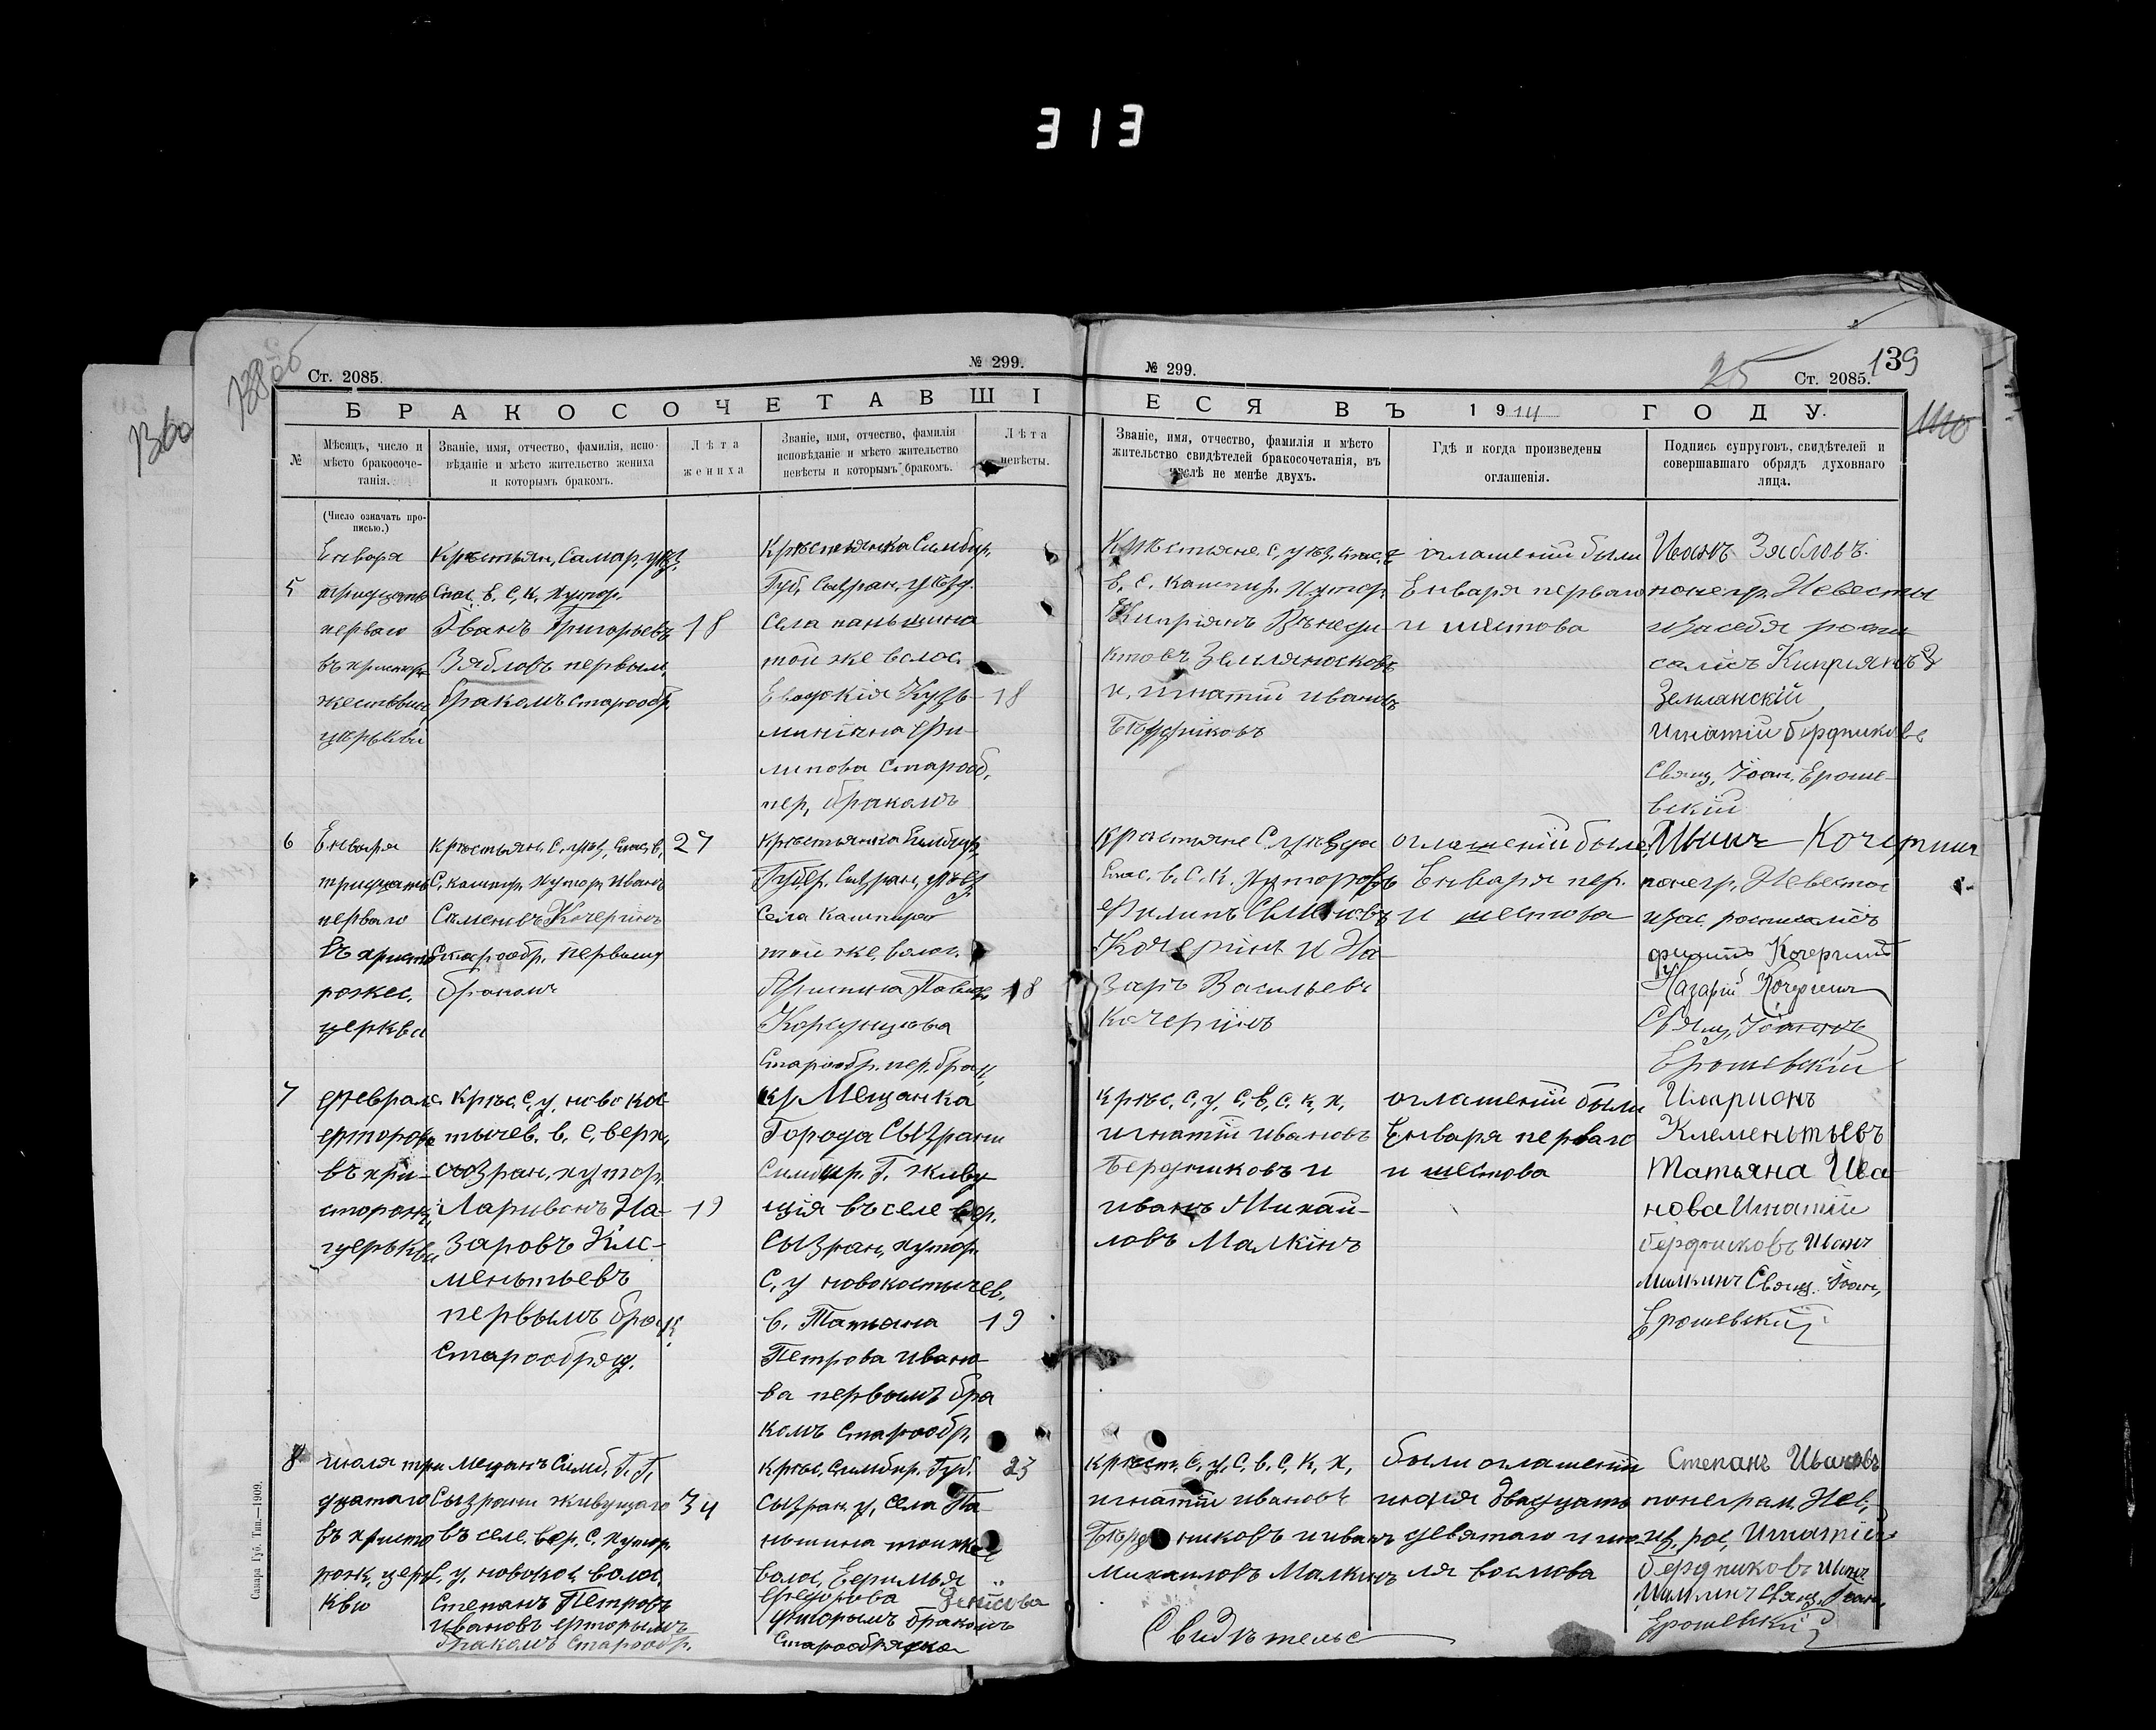 313
138 об
Ст. 2085.
№ 299.
№ 299.
25
Ст. 2085.
139
1360
БРАКОСОЧЕТАВШІ
ЕСЯ ВЪ 1914 ГОДУ.
№
Мѣсяцъ, число и мѣсто бракосоче-
танія.
Званіе, имя, отчество, фамилія, испо-
вѣданіе и мѣсто жительство жениха
и которымъ бракомъ.
Лѣта
жениха
Званіе, имя, отчество, фамилія
исповѣданіе и мѣсто жительство
невѣсты и которымъ бракомъ.
Лѣта
невѣсты.
Званіе, имя, отчество, фамилія и мѣсто
жительство свидѣтелей бракосочетанія, въ
числѣ не менѣе двухъ.
Гдѣ и когда произведены
оглашенія.
Подпись супруговъ, свидѣтелей и
совершавшаго обрядъ духовнаго
лица.
(Число означать про-
писью.)
5
Енваря
тридцать
перваго
въ христор
жествен,
церькви
Крѣстьян, Самар, уѣз,
Спас. В. С, К, Хутор.
Іванъ Григорьевъ
Зябловъ первым,
бракомъ старообр,
18
Крѣстьянка Симбир,
Губ, Сызран, уѣзд.
села паньшина
той же волос.
Евдокия Кузь-
минична Фи-
липова Старооб,
пер, бракомъ
18
Крѣстьяне. С, уѣз, спас,
в. С. Кашпир. Хутор.
Киприянъ Венеди-
ктовъ Землянсковъ
и, игнатий ивановъ
Бердниковъ
оглашений были
Енваря перваго
и шестова
Иванъ Зябловъ.
понегр. Невесты
изасебя роспи-
салсъ Киприянъ
Землянскій
Игнатий бердниковъ
Свящ, Іоан, Ероше-
вский
6
Енваря
тридцать
перваго
въ христо
рожес.
церква
крѣстьян, С. уѣз, Спас, в,
С. кашпир. хутор, Иванъ
Семеновъ Кочергинъ
Старообр. первым,
бракомъ
27
крѣстьянка Симбир,
Губер. Сызран, уѣз,
села Кашпира
той же, волос.
Корунцова
Старообр. пер. брак,
18
крѣстьяне С. уѣзда
Спас. в. С. К. хуторовъ
Филипъ Семеновъ
Кочергинъ и На-
заръ Васильевъ
Кочергинъ
оглашений были
Енваря пер.
и шестова
Иванъ Кочергинъ
понегр, Невесты
изас. росписалсъ
филипъ Кочергинъ
Назарій Кочергинъ
Свящ, Іоаннъ
Ерошевский
7
Февраля
второго
въ хри-
сторож,
церькви
крѣс. С, у, ново ко-
тычев. в. С, верх,
сызран, хутор.
Ларивонъ На-
заровъ Кле-
меньтьевъ
первымъ брак,
Старообряд.
19
кр Мещанка
Города Сызрани
Симбир. Г. живу-
щія въ селе вер.
Сызран, хутор.
С, у новокостычев,
в. Татьяна
Петрова ивано-
ва первымъ бра
комъ старообр,
19
крѣс, С, у, С, в, С, к, х,
игнатий ивановъ
Бердниковъ и
иванъ Михай-
ловъ Малкинъ
оглашений были
Енваря перваго
и шестова
Иларионъ
Клеменьтьевъ
Татьяна Ива
нова Игнатий
бердниковъ Иванъ
Малкинъ Свящ. Іоан,
Ерошевский
8
июля три
дцатаго
въ христо
рож, цер
квю
Мещанъ Симб, Г. Г,
Сызрани живущаго
въ селе, вер, С, хутор.
С, у, новокос, волос,
Степанъ Петровъ
Ивановъ вторымъ
бракомъ Старообр.
34
крѣс, Симбир. Губ.
сызран, у, села Па
ньшина той же
волос, Еримья
Федорова Денисова
вторымъ бракомъ
Старообрядка
23
крѣст, С, у, С, в, С, К, Х,
игнатий ивановъ
Бердниковъ и иванъ
Михаиловъ Малкинъ
Свидѣтельс
были оглашений
июня двадцать
девятаго и ию-
ля восмова
Степанъ Ивановъ
понеграм, Нев,
из, рос, Игнатий
бердниковъ Иван.
Малкинъ Свящ, Іоан,
Ерошевский
Самара Губ. Тип.—1909.